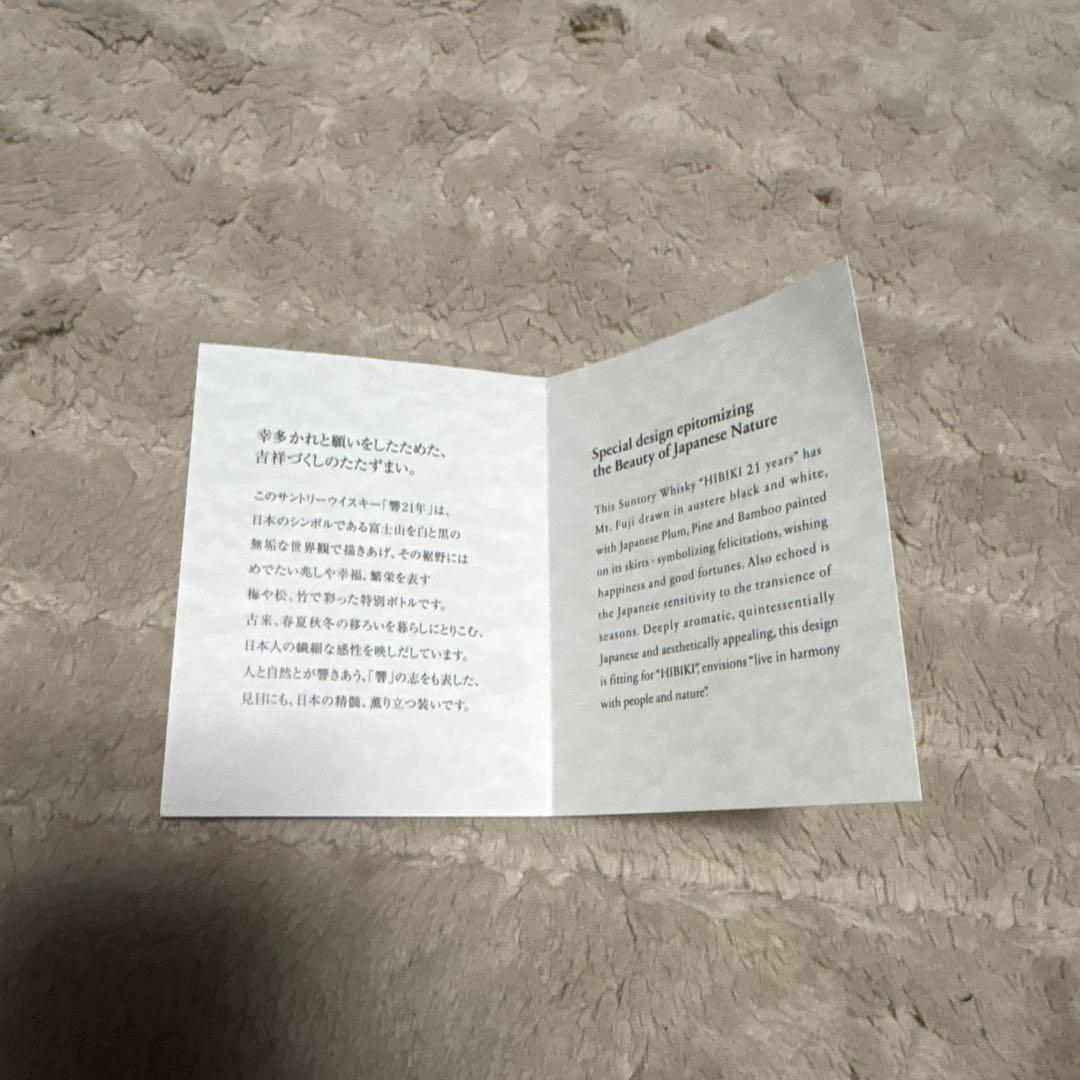 幸多かれと願いをしたためた、
吉祥づくしのたたずまい。
このサントリーウイスキー「響21年」は、
日本のシンボルである富士山を白と黒の
無垢な世界観で描きあげ、その裾野には
めでたい兆しや幸福、繁栄を表す
梅や松、竹で彩った特別ボトルです。
古来、春夏秋冬の移ろいを暮らしにとりこむ、
日本人の繊細な感性を映しだしています。
人と自然とが響きあう、「響」の志をも表した、
見目にも、日本の精髄、薫り立つ装いです。
Special design epitomizing
the Beauty of Japanese Nature
This Suntory Whisky "HIBIKI 21 years" has
Mt. Fuji drawn in austere black and white,
with Japanese Plum, Pine and Bamboo painted
on its skirts - symbolizing felicitations, wishing
happiness and good fortunes. Also echoed is
the Japanese sensitivity to the transience of
seasons. Deeply aromatic, quintessentially
Japanese and aesthetically appealing, this design
is fitting for "HIBIKI", envisions "live in harmony
with people and nature".